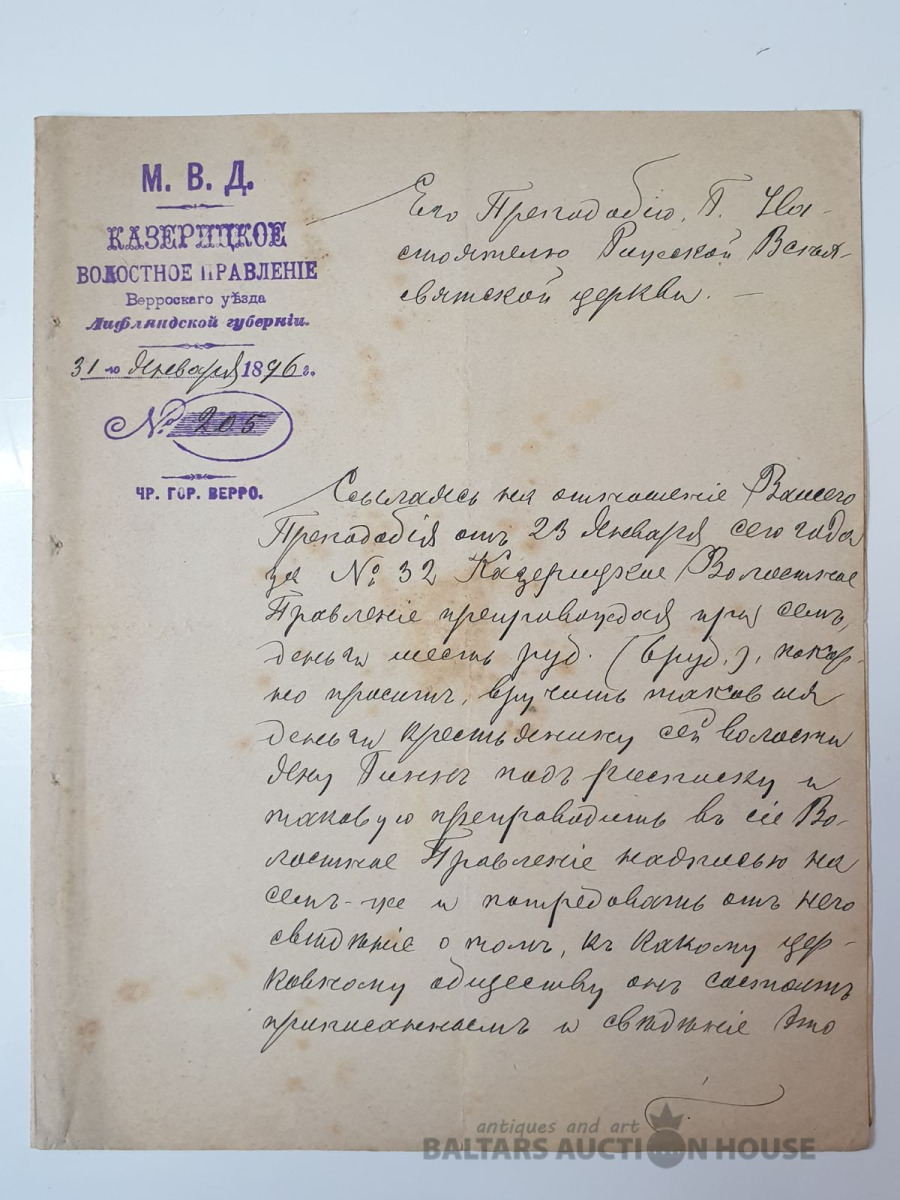 М. В. Д.
КАЗЕРИЦКОЕ
ВОЛОСТНОЕ ПРАВЛЕНІЕ
Верроскаго уѣзда
Лифляндской губерніи.
31 го Января 1896 г.
№ 205
ЧР. ГОР. ВЕРРО.
Его Преподобію, Г. На-
стоятелю Рижской Всѣхъ-
святской церкви. —
Ссылаясь на отношеніе Вашего
Преподобія отъ 23 Января сего года
за № 32 Казерицкое Волостное
Правленіе препровождая при семъ,
деньги шесть руб. (6 руб.), покор-
но проситъ, вручить таковыя
деньги крестьянину сей волости
Яну подъ росписку и
таковую препроводить въ сіе Во-
лостное Правленіе надписью на
семъ-же и потребовать отъ него
свѣдѣніе о томъ, къ какому цер-
ковному обществу онъ состоитъ
приписаннымъ и свѣдѣніе это
antiques and art
BALTARS AUCTION HOUSE